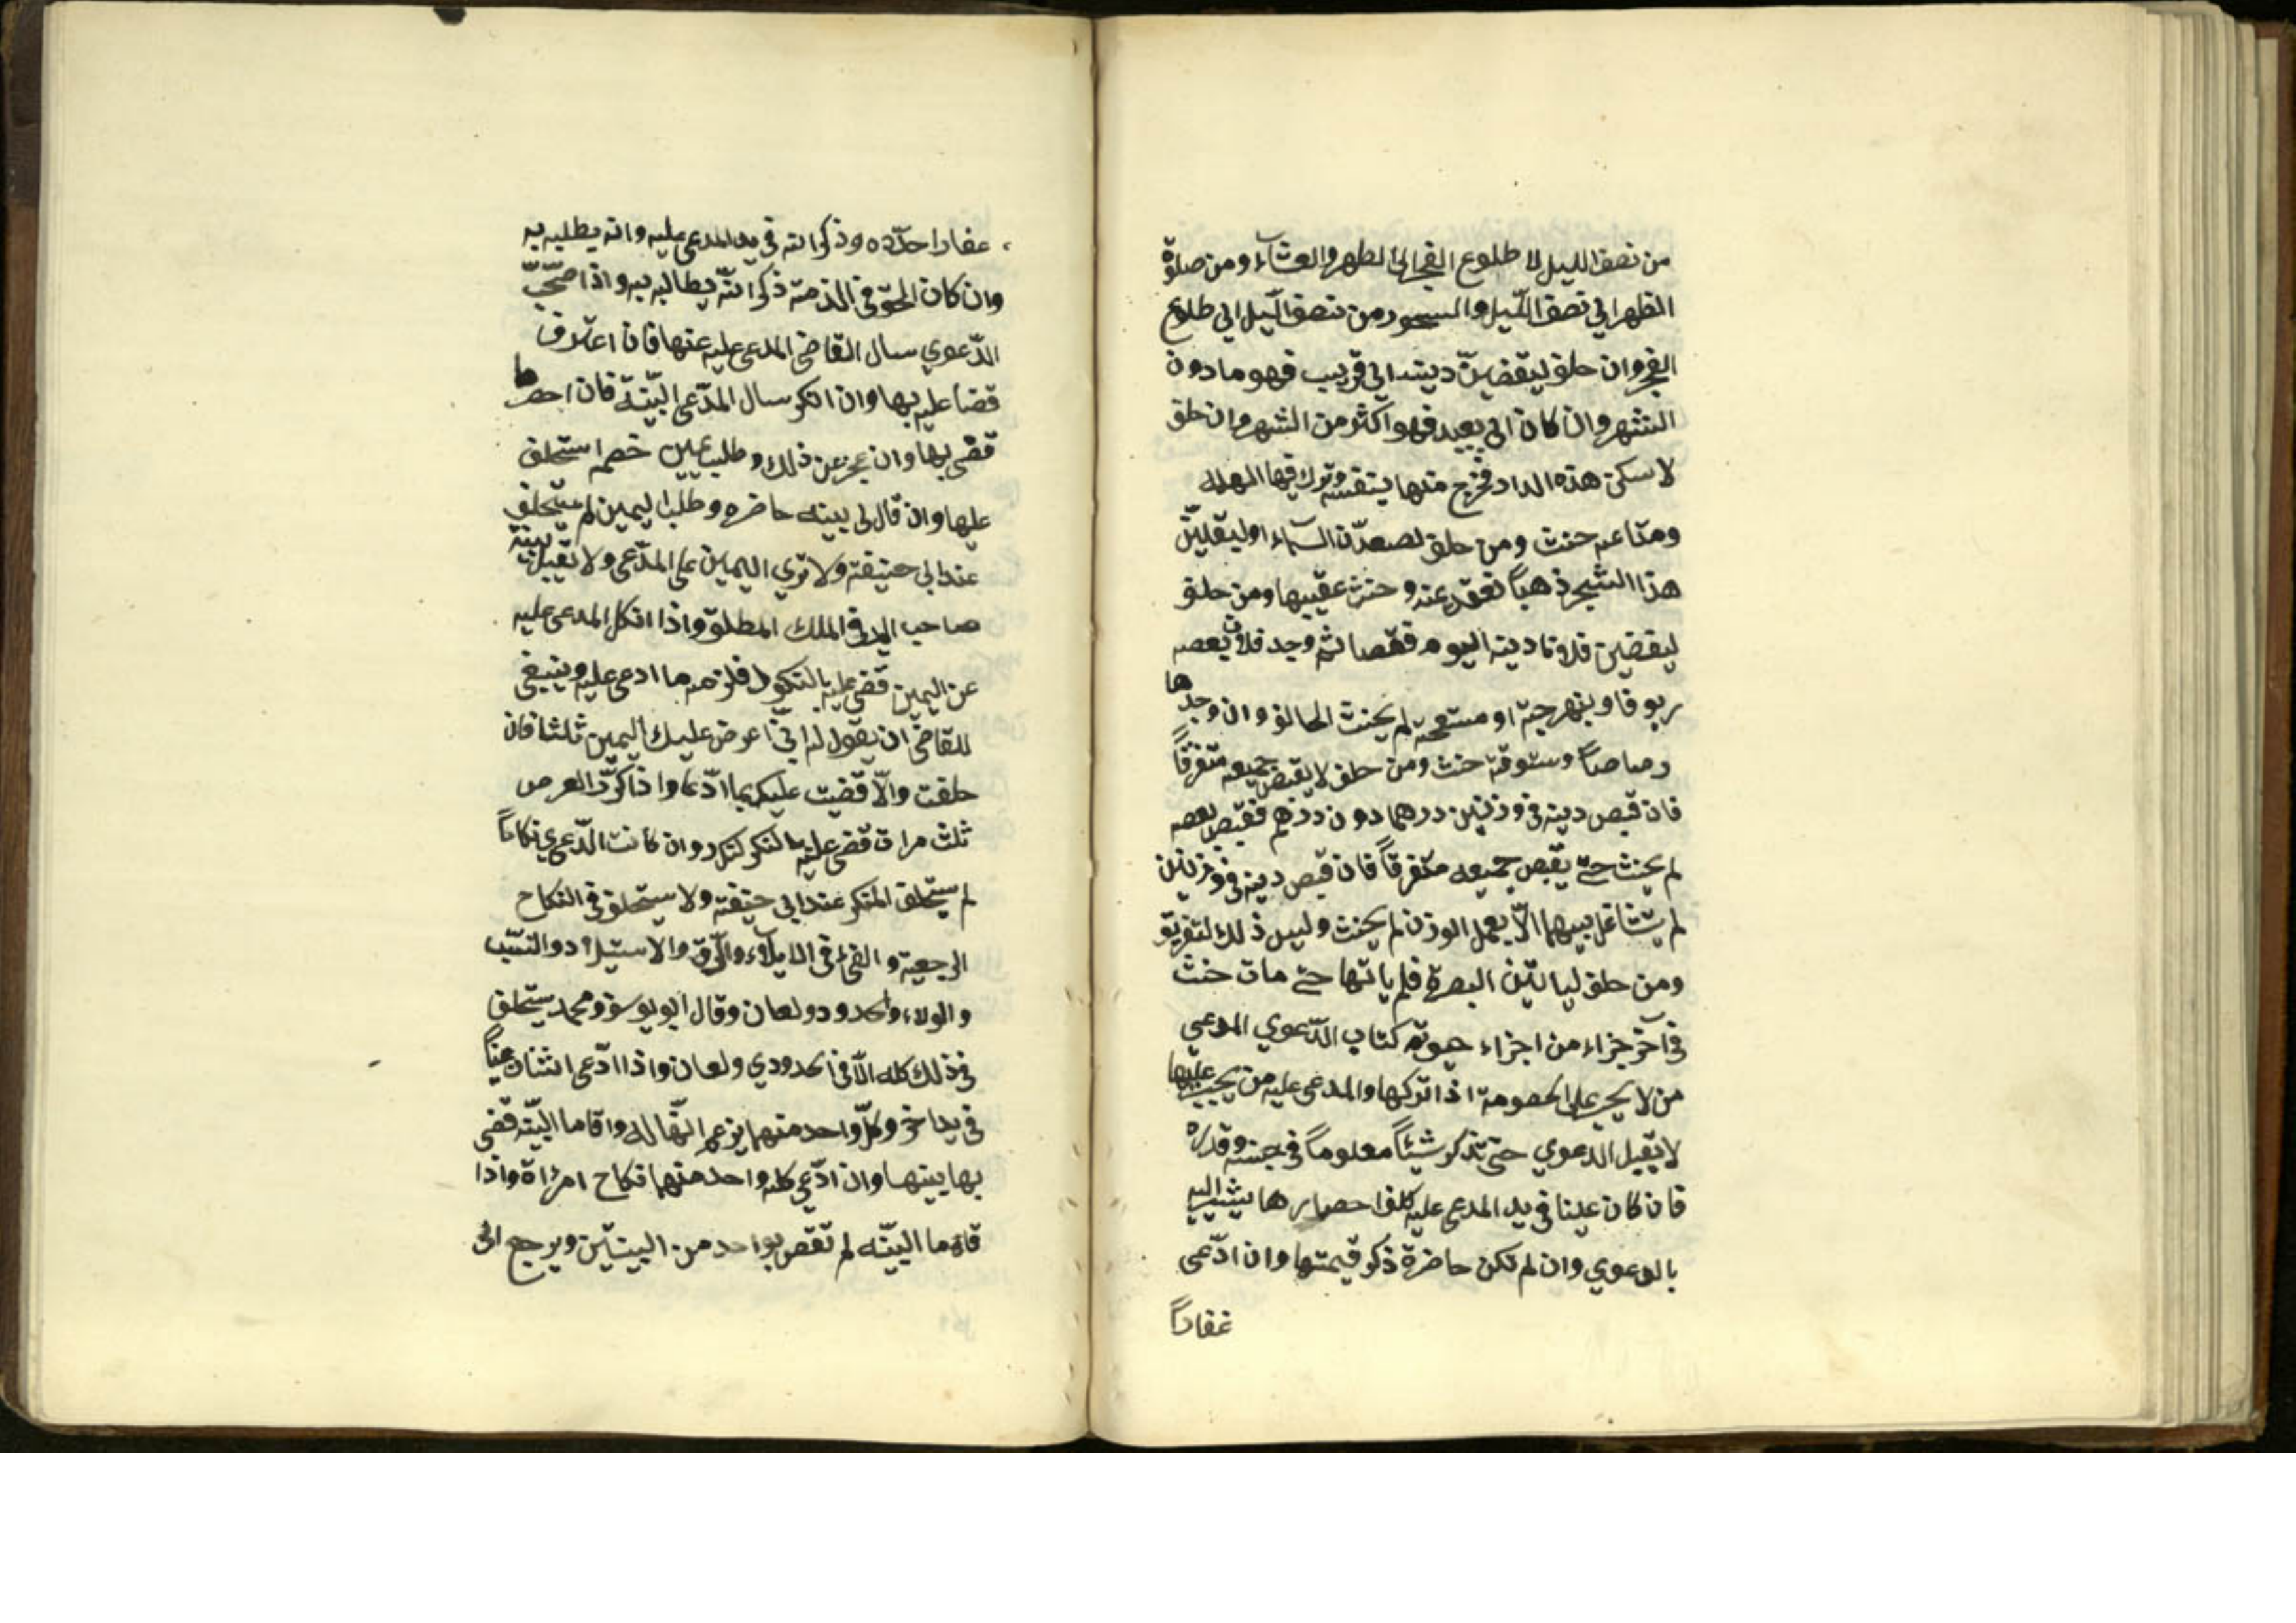 من نصف الليل لا طلوع الفجر الى الظهر والعشآء ومن صلوة
الظهر الى نصف اللّيل والسحور من نصف اللّيل الى طلوع
الفجر وان حلف ليقضينّ دينه الى قريب فهو مادون
الشهر وان كان الى بعيد فهو اكثر من الشهر وان حلف
لا سكن هذه الدار فخرج منها بنفسه وترك فيها اهله
ومتاعه حنث ومن حلف لصعدّن السّماء او ليقلبنّ
هذا الشجر ذهباً تعقد عنه وحنث عقيبها ومن حلف
ليقضين فلانا دينه اليوم فقصا ثم وجد فلان بعصه
ربوفا وبنهرجة او مستحقة لم يحنث الحالف وان وجدها
رصاصاً وستوقة حنث ومن حلف لا يقبض جميعه متفرقاً
فان قبص دينه في وزنين درهما دون درهم فقبص بعصه
لم يحنث حتى يقبص جميعه متفرقاً فان قبص دينه في وزنين
لم يتشاغل بينهما الّا بعمل الوزن لم يحنث وليس ذلك لتفريق
ومن حلف لياتين البصرة فلم ياتها حتى مات حنث
في آخر جزاء من اجزاء حيوته كتاب الدّعوي المدعي
من لا يجبر على الخصومة اذا تركها والمدعى عليه من يجبر عليها
لا يقبل الدعوي حتى تذكر شيئاً معلوماً في جنسه وقدره
فان كان عينا في يد المدعى عليه كلف احصارها يشير اليه
بالدعوي وان لم تكن حاضرة ذكر قيمتها وان ادّعى
عقاراً
عقارا حدّده وذكر انّه في يد المدعى عليه وانه يطلبه به
وان كان الحق في الذمة ذكر انّه يطالبه به واذا صحّت
الدّعوي سال القاضى المدعى عليه عنها فان اعترف
قضا عليه بها وان انكر سال المدّعى البيّنة فان احصرها
قضى بها وان عجز عن ذلك وطلب يمين خصم استحلف
عليها وان قال لى بينه حاضره وطلب اليمين لم يستحلف
عند ابى حنيفة ولا تري اليمين على المدّعى ولا تقبل بينة
صاحب اليد في الملك المطلق واذا انكل المدعى عليه
عن اليمين قضى عليه بالنكول فلزمه ما ادعى عليه وينبغي
للقاضى ان يقول له انّي اعرض عليك اليمين ثلثا فان
حلفت والّا قضيت عليك بما ادّعا واذا كرّر العرض
ثلث مرات قضى عليه بالنكول وان كانت الدّعوي نكاحاً
لم يستحلف المنكر عند ابي حنيفة ولا يستحلف في النكاح
الرجعية والفئ في الايلاء والرّق والاستيلاد والنسب
والولاء والحدود ولعان وقال ابو يوسف ومحمد يستحلف
في ذلك كله الّا في الحدودي ولعان واذا ادّعى اثنان عيناً
في يد اخر وكلّ واحد منهما يزعم انّها له واقاما البيّنة قضى
بها بينهما وان ادّعى كلّ واحد منهما نكاح امراة واذا
قاما البيّنه لم تقص بواحد من البينتين ويرجع الى